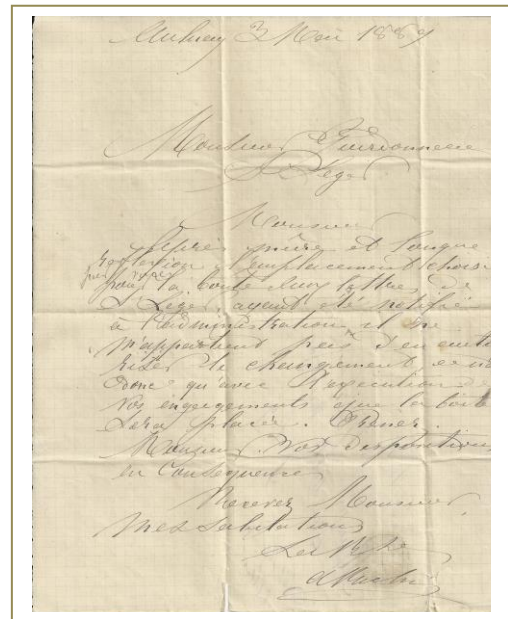 Aulnay 3 Mai 1889
Monsieur
St Léger
Monsieur
Après mûre et longue
réflexion l'emplacement choisi
par vous
pour la boîte aux lettres de
St Léger, ayant été notifié
à l'administration, il ne
m'appartient pas d'en auto
riser le changement, ce n'
donc qu'avec l'exécution de
vos engagements que la boîte
sera placée. Prenez
Monsieur vos dispositions
en conséquence
Recevez Monsieur
mes salutations